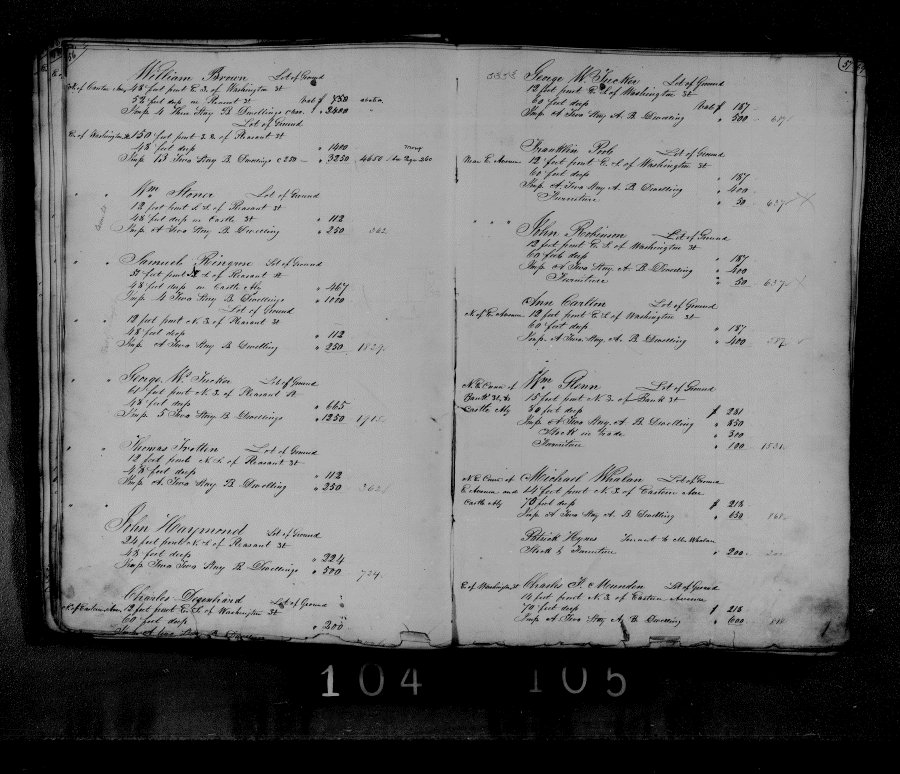 56
William Brown Lot of Ground
48 feet front E. S. of Washington St
52 feet deep in Pleasant St Val $ 750
Imp 4 Three Story B Dwellings " 2400
Lot of Ground
E. of Washington St 150 feet front S. S. of Pleasant St
48 feet deep " 1400
Imp 13 Two Story B Dwellings @ 250 " 3250 4650
" " Wm Stoner Lot of Ground
12 feet front S. S. of Pleasant St
48 feet deep in Castle St " 112
Imp A Two Story B Dwelling " 250 362
" " Samuel Ringrose Lot of Ground
feet front S. S. of Pleasant St
48 feet deep in Castle Aly " 467
Imp 4 Two Story B Dwellings " 1000
Lot of Ground
" " 12 feet front N. S. of Pleasant St
48 feet deep " 112
Imp A Two Story B Dwelling " 250 1829
" " George W. Tucker Lot of Ground
61 feet front N. S. of Pleasant St
48 feet deep " 665
Imp 5 Two Story B Dwellings " 1250 1915
" " Thomas Lot of Ground
12 feet front N. S. of Pleasant St
48 feet deep " 112
Imp A Two Story B Dwelling " 250 362
" " John Haymond Lot of Ground
24 feet front N. S. of Pleasant St
48 feet deep " 224
Imp Two Two Story B Dwellings " 500 724
Charles Lot of Ground
N. of Eastern Ave 12 feet front E. S. of Washington St
60 feet deep " 200
57
George W. Tucker Lot of Ground
12 feet front E. S. of Washington St
60 feet deep Val $ 187
Imp A Two Story A. B Dwelling " 500 687
Franklin Lot of Ground
Near E. Avenue 12 feet front E. S. of Washington St
60 feet deep " 187
Imp A Two Story A B Dwelling " 400
Furniture " 50 637
" " " John Robinson Lot of Ground
12 feet front E. S. of Washington St
60 feet deep " 187
Imp A Two Story A. B Dwelling " 400
Furniture " 50 637
Ann Carlton Lot of Ground
N. of E. Avenue 12 feet front E. S. of Washington St
60 feet deep " 187
Imp A Two Story A. B Dwelling " 400 587
N. E. Corner of Wm Glenn Lot of Ground
Bank St & 15 feet front N. S. of Bank St
Castle Aly 80 feet deep $ 281
Imp A Two Story A. B Dwelling " 850
Stock in Trade " 300
Furniture " 100 1531
N. E. Corner of Michael Whalan Lot of Ground
E. Avenue and 14 feet front N. S. of Eastern Ave
Castle Aly 70 feet deep $ 218
Imp A Two Story A B Dwelling " 650 868
Patrick Hynes Tenant to Mr Whalan
Stock & Furniture " 200 200
E of Washington St Charles F. Munden Lot of Ground
14 feet front N. S. of Eastern Avenue
70 feet deep $ 218
Imp A Two Story A B Dwelling " 600 818
104 105